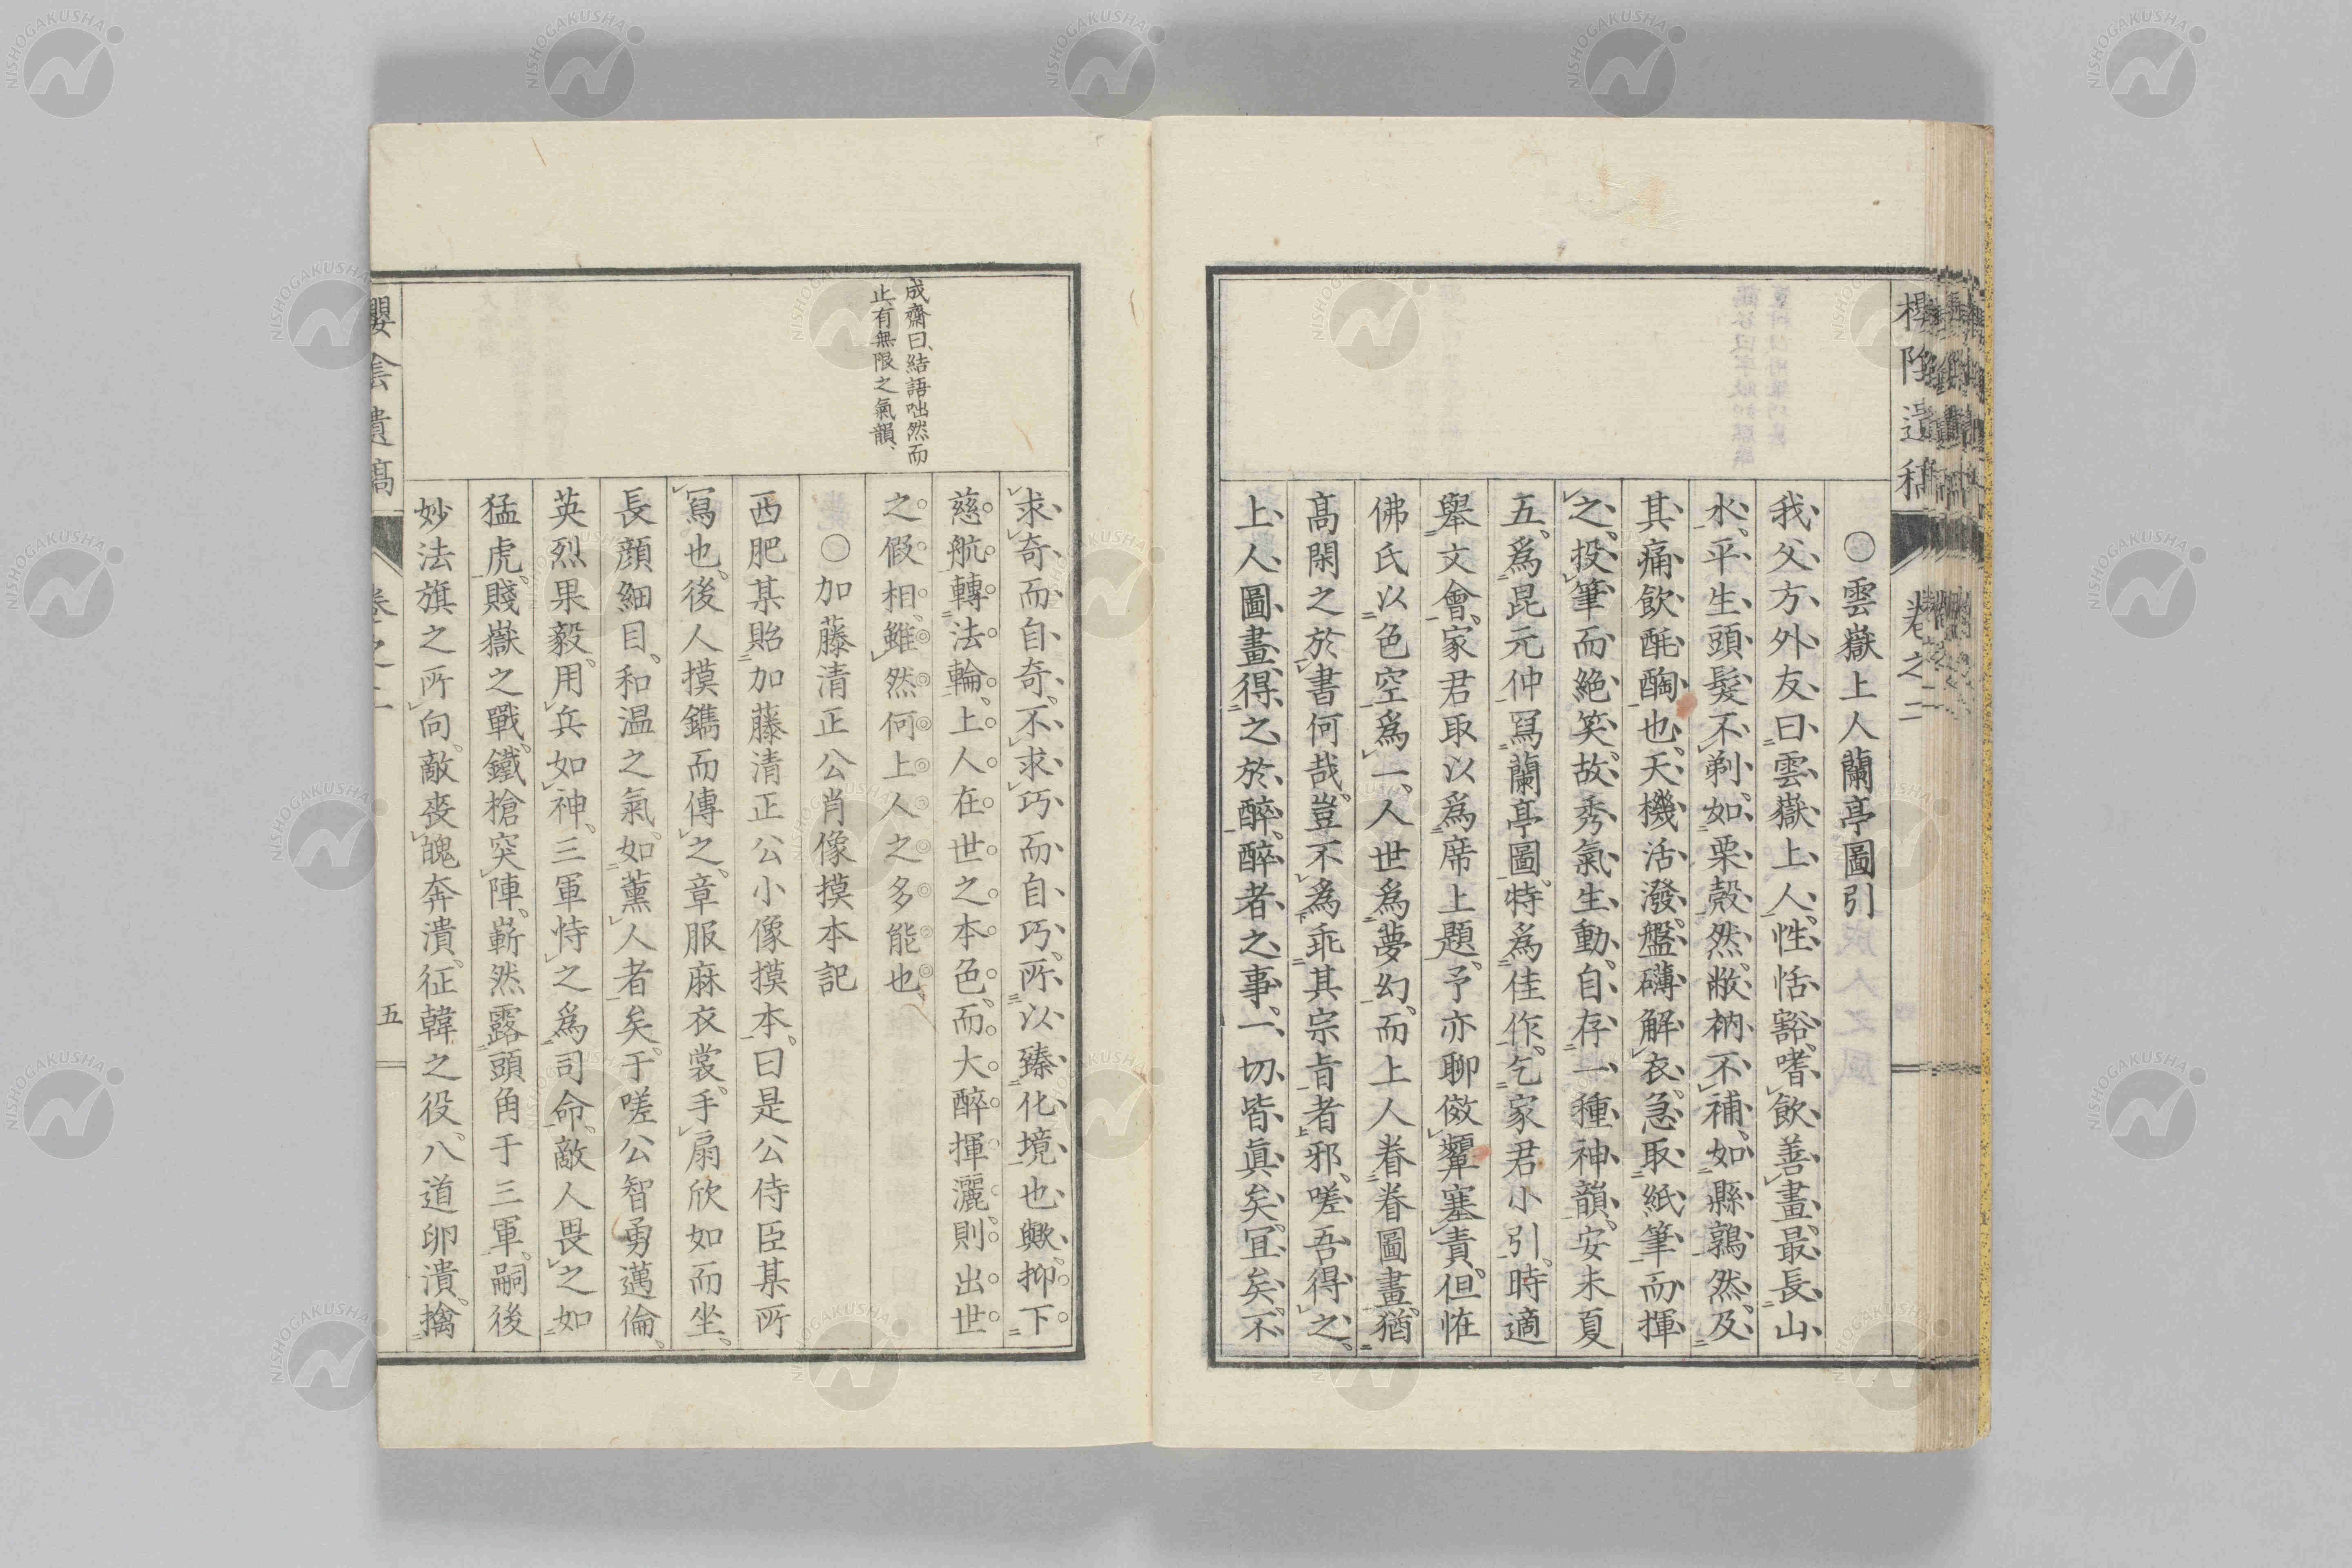 櫻陰遺稿
卷之二
○雲嶽上人蘭亭圖引
我父方外友曰雲嶽上人性恬豁嗜飲善畫最長山
水平生頭髮不剃如栗殼然敝衲不補如懸鶉然及
其痛飲酕醄也天機活潑盤礴解衣急取紙筆而揮
之投筆而絶笑故秀氣生動自存一種神韻安未夏
五爲昆元仲冩蘭亭圖特爲佳作乞家君小引時適
舉文會家君取以爲席上題予亦聊傚顰塞責但恠
佛氏以色空爲一人世爲夢幻而上人眷眷圖畫猶
髙閑之於書何哉豈不爲乖其宗旨者邪嗟吾得之
上人圖畫得之於醉醉者之事一切皆眞矣冝矣不
求奇而自奇不求巧而自巧所以臻化境也歟抑下
慈航轉法輪上人在世之本色而大醉揮灑則出世
之假相雖然何上人之多能也
成齋曰結語咄然而
止有無限之氣韻
○加藤清正公肖像摸本記
西肥某貽加藤清正公小像摸本曰是公侍臣某所
冩也後人摸鐫而傳之章服麻衣裳手扇欣如而坐
長顔細目和温之氣如薫人者矣于嗟公智勇邁倫
英烈果毅用兵如神三軍恃之爲司命敵人畏之如
猛虎賤嶽之戰鐵槍突陣嶄然露頭角于三軍嗣後
妙法旗之所向敵喪魄奔潰征韓之役八道卵潰擒
櫻陰遺稿
卷之二
五